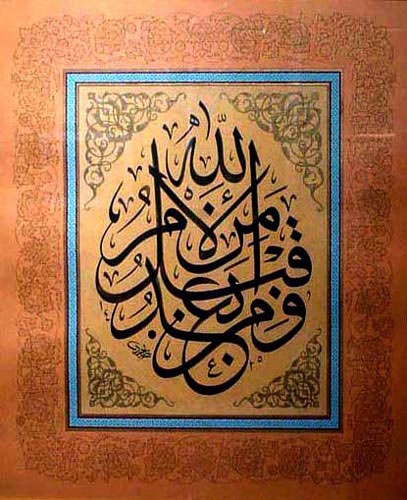 لله الأمر من قبل ومن بعد